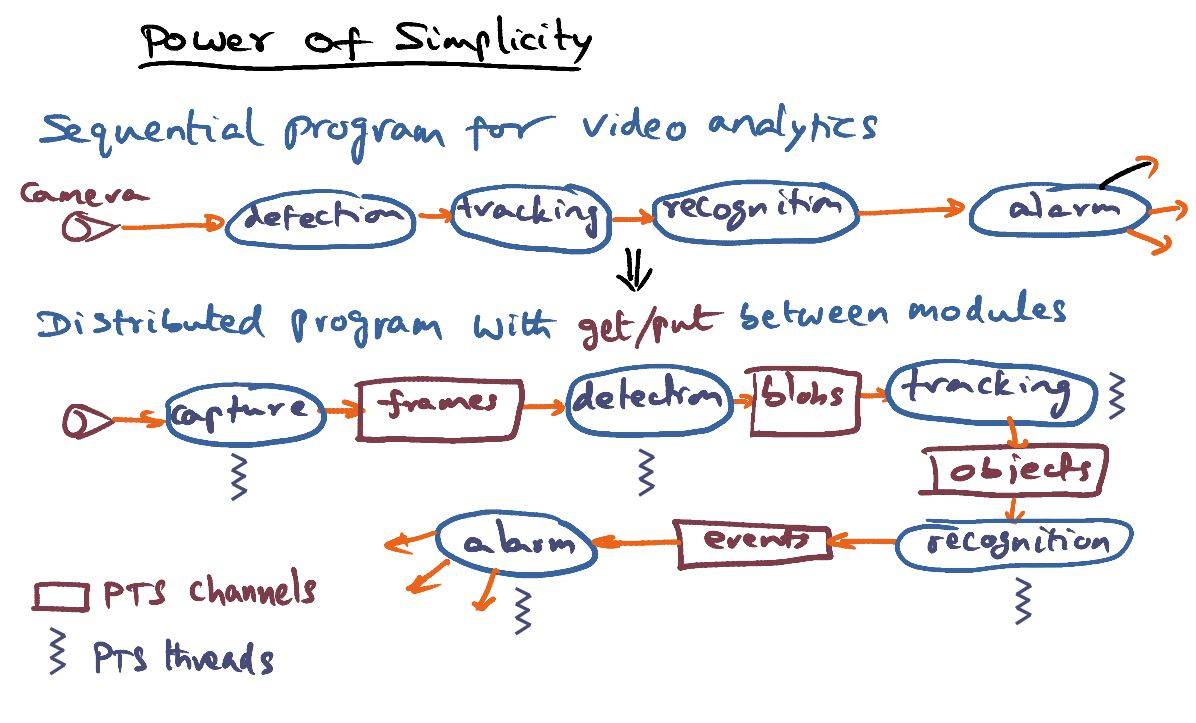 Power of Simplicity
Sequential program for video analytics
Camera
detection
tracking
recognition
alarm
Distributed program with get/put between modules
capture
frames
detection
blobs
tracking
objects
recognition
events
alarm
PTS channels
PTS threads